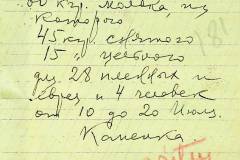 60 кгр. молока из
которого
45 кгр. снятого
15 г. цельного
для 28 пленных и
евреи и 4 человек
от 10 до 20 Июля.
Каменка
181